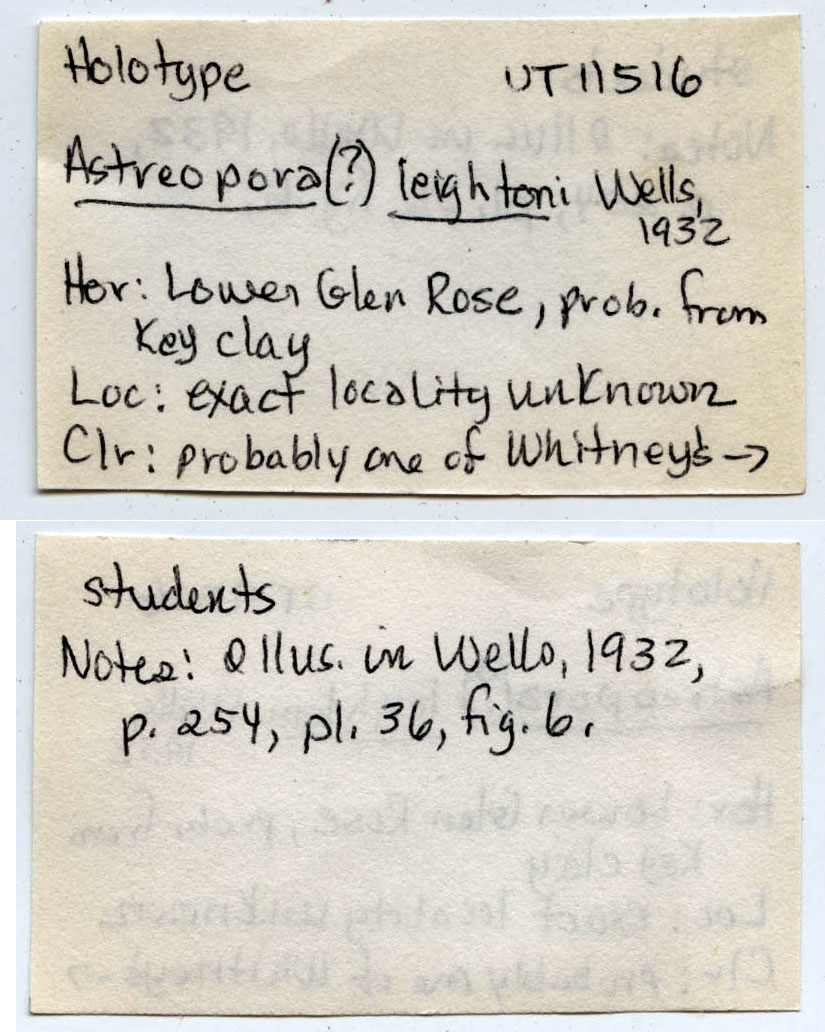 Holotype UT11516
Astreopora(?) leightoni Wells,
1932
Hor: Lower Glen Rose, prob. from
Key clay
Loc: exact locality unknown
Clr: probably one of Whitney's →
students
Notes: Illus. in Wells, 1932,
p. 254, pl. 36, fig. 6.